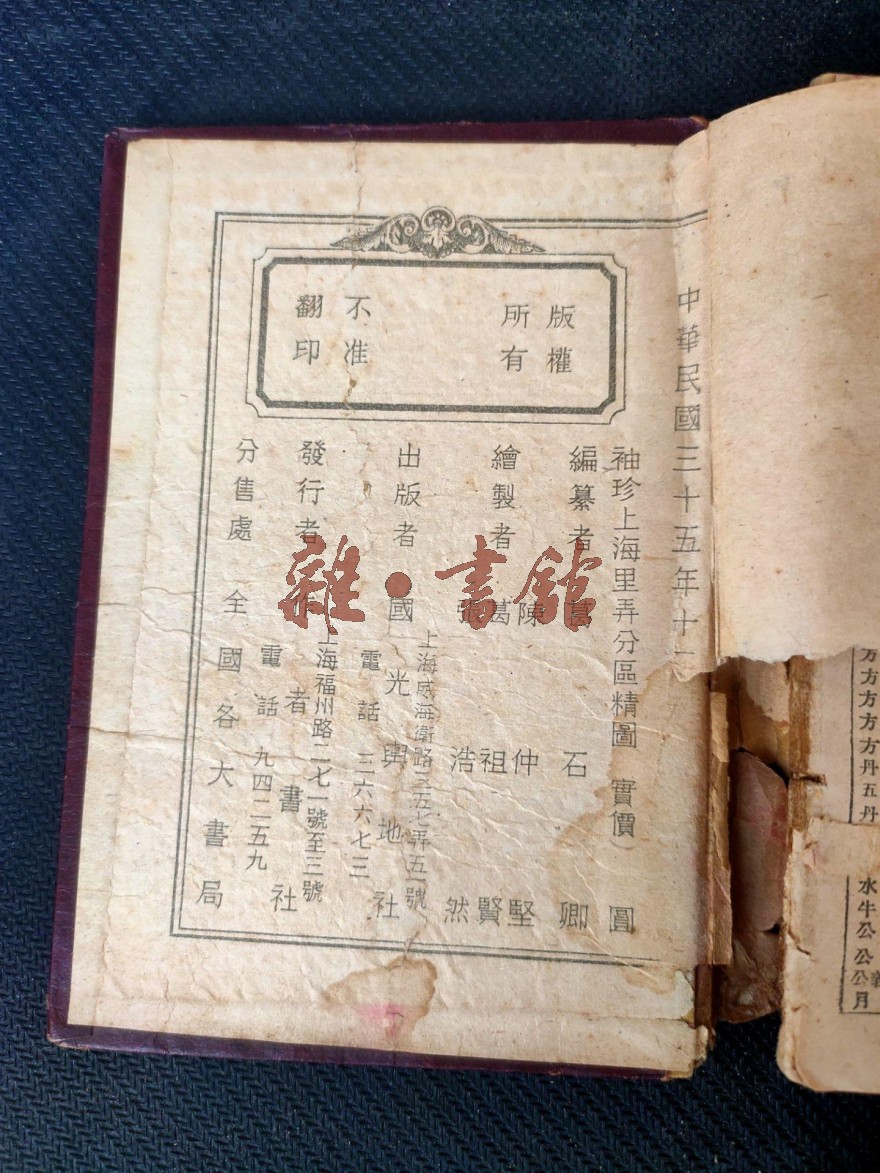 版權
所有
不准
翻印
中華民國三十五年十
袖珍上海里弄分區精圖 實價 圓
編纂者 葛石卿
繪製者 陳仲堅
葛祖賢
張浩然
出版者 國光輿地社
上海威海衛路三五七弄五一號
電話 三六六七三
發行者 作者書社
上海福州路二七一號至三號
電話 九四二五九
分售處 全國各大書局
雜·書館
方方方方方丹五丹
水牛公公公月